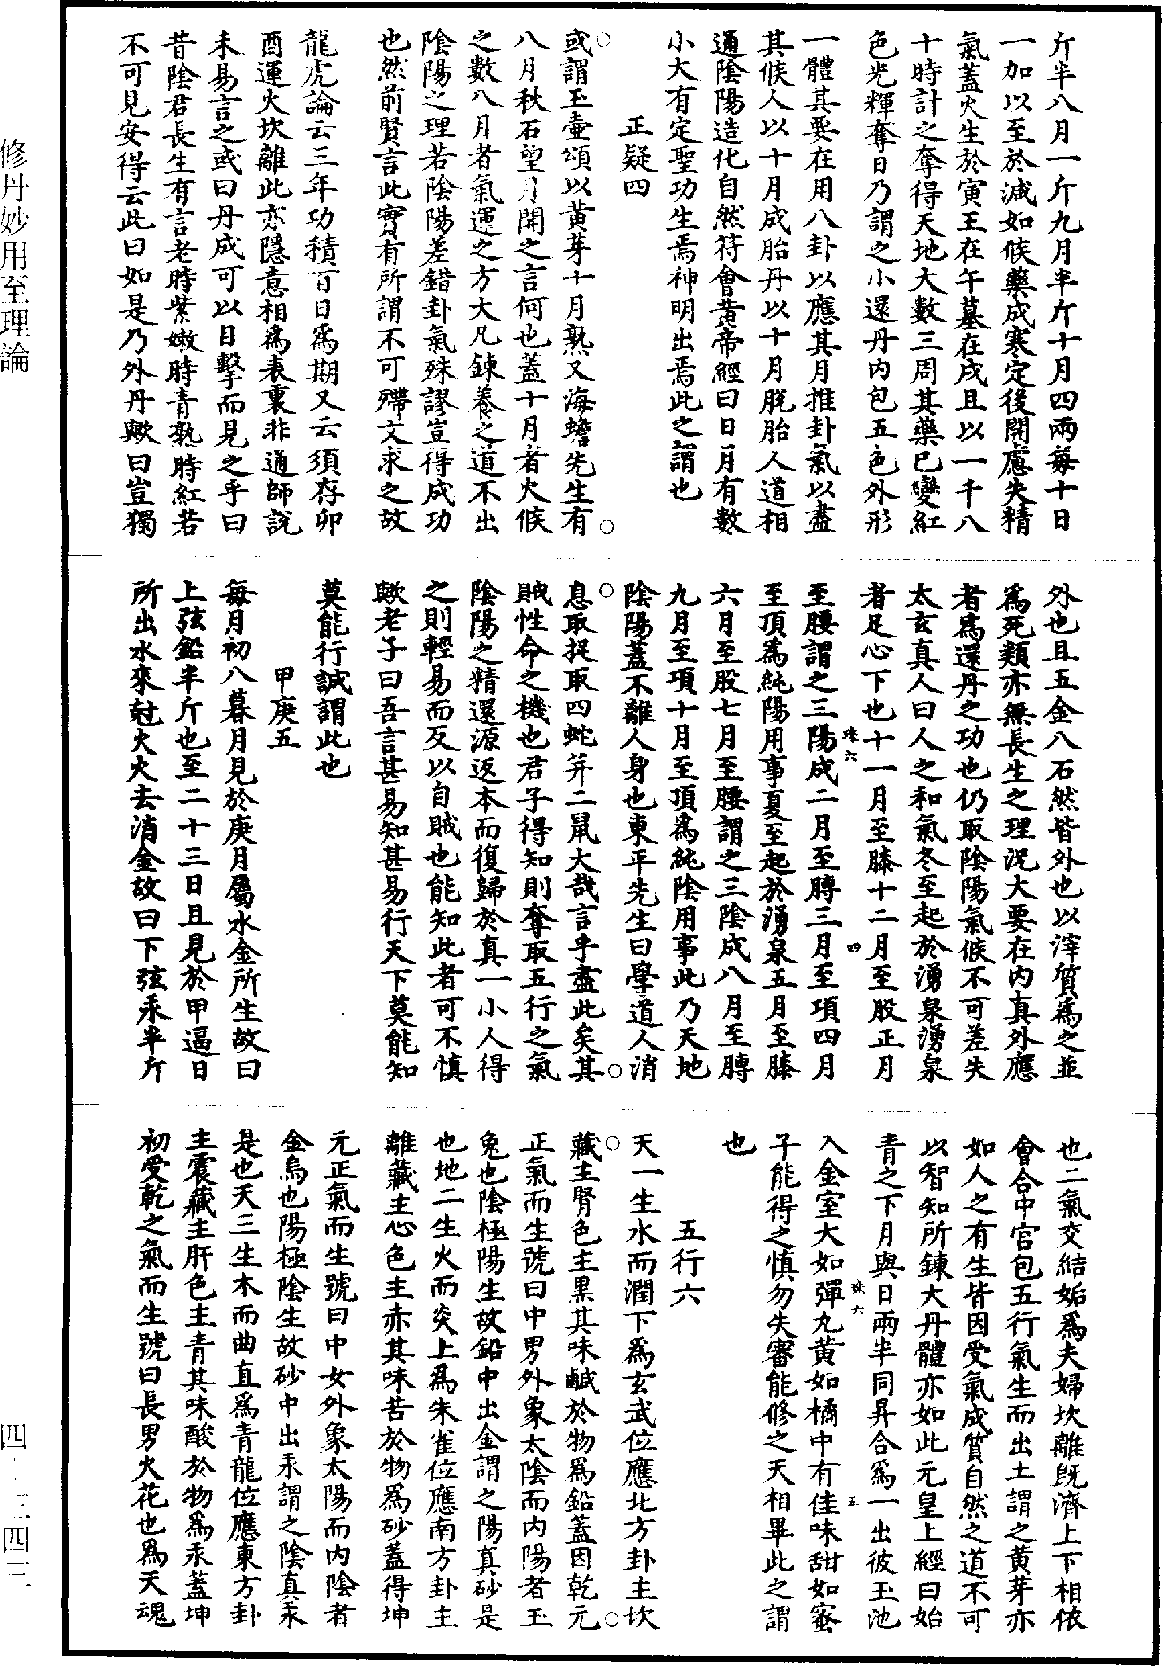 斤半八月一斤九月半斤十月四兩每十日
一加以至於減如候藥成寒定後開慮失精
氣蓋火生於寅王在午墓在戌且以一千八
十時計之奪得天地大數三周其藥已變紅
色光輝奪日乃謂之小還丹內包五色外形
一體其要在用八卦以應其月推卦氣以盡
其候人以十月成胎丹以十月脫胎人道相
通陰陽造化自然符會黃帝經曰日月有數
小大有定聖功生焉神明出焉此之謂也
正疑四
或謂玉壺頌以黃芽十月熟又海蟾先生有
八月秋石望月開之言何也蓋十月者火候
之數八月者氣運之方大凡鍊養之道不出
陰陽之理若陰陽差錯卦氣殊謬豈得成功
也然前賢言此寶有所謂不可殢文求之故
龍虎論云三年功積百日為期又云須存卯
酉運火坎離此亦隱意相為表裏非通師說
未易言之或曰丹成可以目擊而見之乎曰
昔陰君長生有言老時紫嫩時青熟時紅若
不可見安得云此曰如是乃外丹歟曰豈獨
外也且五金八石然皆外也以滓質為之並
為死類亦無長生之理況大要在內真外應
者為還丹之功也仍取陰陽氣候不可差失
太玄真人曰人之和氣冬至起於湧泉湧泉
者足心下也十一月至膝十二月至股正月
至腰謂之三陽成二月至膊三月至項四月
至頂為純陽用事夏至起於湧泉五月至膝
六月至股七月至腰謂之三陰成八月至膊
九月至項十月至頂為純陰用事此乃天地
陰陽蓋不離人身也東平先生曰學道人消
息取捉取四蛇并二鼠大哉言乎盡此矣其
賊性命之機也君子得知則奪取五行之氣
陰陽之精還源返本而復歸於真一小人得
之則輕易而反以自賊也能知此者可不慎
歟老子曰吾言甚易知甚易行天下莫能知
莫能行誠謂此也
甲庚五
每月初八暮月見於庚月屬水金所生故曰
上弦鉛半斤也至二十三日且見於甲逼日
所出水來尅火火去消金故曰下弦汞半斤
也二氣交結姤為夫婦坎離既濟上下相依
會合中宮包五行氣生而出土謂之黃芽亦
如人之有生皆因受氣成質自然之道不可
以智知所鍊大丹體亦如此元皇上經曰始
青之下月與日兩半同昇合為一出彼玉池
入金室大如彈丸黃如橘中有佳味甜如蜜
子能得之慎勿失審能修之天相畢此之謂
也
五行六
天一生水而潤下為玄武位應北方卦主坎
藏主腎色主黑其味鹹於物為鉛蓋因乾元
正氣而生號曰中男外象太陰而內陽者玉
兔也陰極陽生故鉛中出金謂之陽真砂是
也地二生火而炎上為朱雀位應南方卦主
離藏主心色主赤其味苦於物為砂蓋得坤
元正氣而生號曰中女外象太陽而內陰者
金烏也陽極陰生故砂中出汞謂之陰真汞
是也天三生木而曲直為青龍位應東方卦
主震藏主肝色主青其味酸於物為汞蓋坤
初受乾之氣而生號曰長男火花也為天魂
修丹妙用至理論
四·三四三